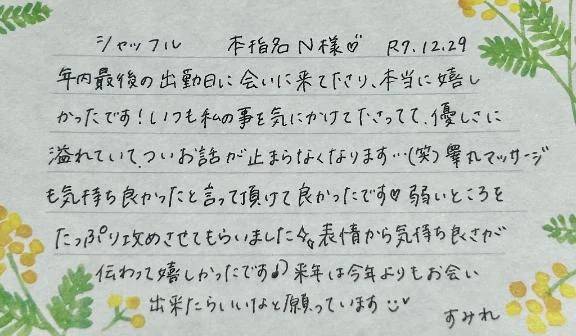 シャッフル 本指名 N様♡ R7.12.29
年内最後の出勤日に会いに来て下さり、本当に嬉し
かったです!いつも私の事を気にかけて下さってて、優しさに
溢れていて、ついお話が止まらなくなります…(笑)睾丸マッサージ
も気持ち良かったと言って頂けて良かったです♡弱いところを
たっぷり攻めさせてもらいました☆。表情から気持ち良さが
伝わって嬉しかったです♪来年は今年よりもお会い
出来たらいいなと願っています
すみれ